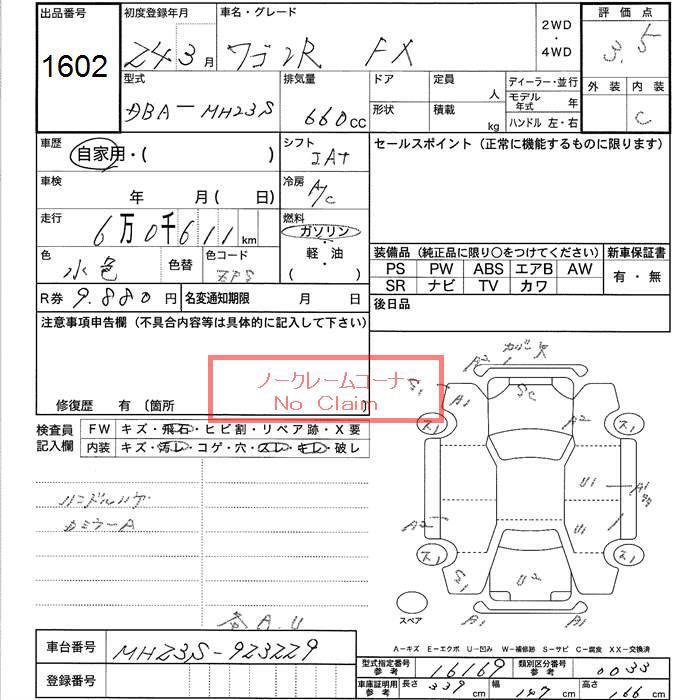 出品番号 初度登録年月 車名・グレード 2WD ・ 4WD 評価点
1602 24 3月 ワゴンR FX 3.5
型式 排気量 ドア 定員 人 ディーラー・並行 外装 内装
DBA-MH23S 660cc 形状 積載 kg モデル年式 年 C
ハンドル 左・右
車歴 自家用・( ) シフト IAT セールスポイント (正常に機能するものに限ります)
車検 年 月( 日) 冷房 A/C
走行 6万0千611km 燃料 ガソリン
軽・油
( )
色 水色 色替 色コード ZPS
装備品 (純正品に限り○をつけてください) 新車保証書
PS PW ABS エアB AW 有・無
SR ナビ TV カワ
R券 9.880円 名変通知期限 月 日 後日品
注意事項申告欄 (不具合内容等は具体的に記入して下さい)
ノークレームコーナー
No Claim
修復歴 有 〔箇所
検査員記入欄 FW キズ・飛石・ヒビ割・リペア跡・X要
内装 キズ・汚レ・コゲ・穴・スレ・キレ・破レ
ハンドルハゲ
A1 A2 U1 U2 S1 A1
スペア
A・U
A-キズ E-エクボ U-凹み W-補修跡 S-サビ C-腐食 XX-交換済
車台番号 MH23S-923229
登録番号
型式指定番号 参考 16169 類別区分番号 参考 0033
車庫証明用 参考 長さ 339cm 幅 147cm 高さ 166cm